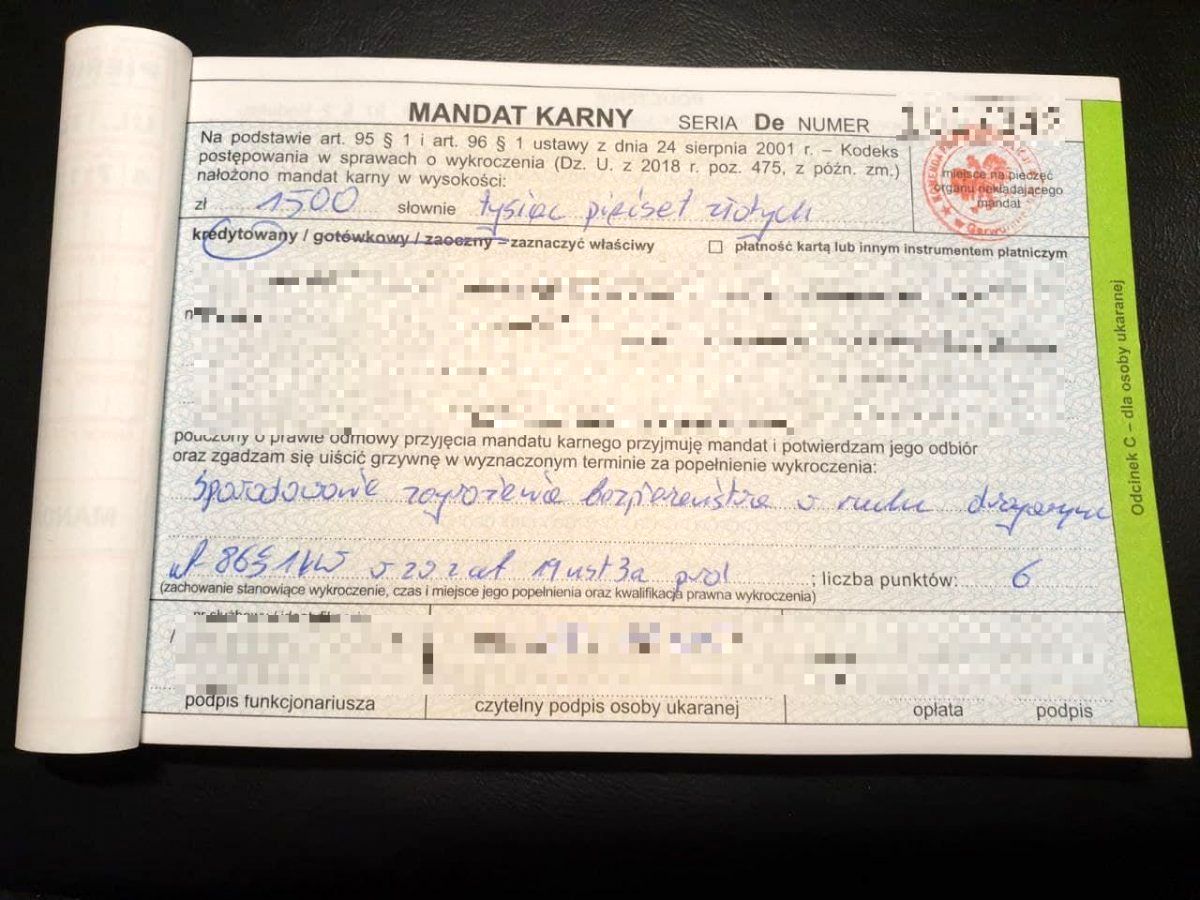 MANDAT KARNY SERIA De NUMER
Na podstawie art. 95 § 1 i art. 96 § 1 ustawy z dnia 24 sierpnia 2001 r. – Kodeks
postępowania w sprawach o wykroczenia (Dz. U. z 2018 r. poz. 475, z późn. zm.)
nałożono mandat karny w wysokości:
miejsce na pieczęć
organu nakładającego
mandat
zł 1500 słownie tysiąc pięćset złotych
kredytowany / gotówkowy / zaoczny – zaznaczyć właściwy
płatność kartą lub innym instrumentem płatniczym
pouczony o prawie odmowy przyjęcia mandatu karnego przyjmuję mandat i potwierdzam jego odbiór
oraz zgadzam się uiścić grzywnę w wyznaczonym terminie za popełnienie wykroczenia:
Spowodowanie zagrożenia bezpieczeństwa w ruchu drogowym
86§1kw w zw z art 19 ust 3a prd ; liczba punktów: 6
(zachowanie stanowiące wykroczenie, czas i miejsce jego popełnienia oraz kwalifikacja prawna wykroczenia)
podpis funkcjonariusza
czytelny podpis osoby ukaranej
opłata podpis
Odcinek C – dla osoby ukaranej